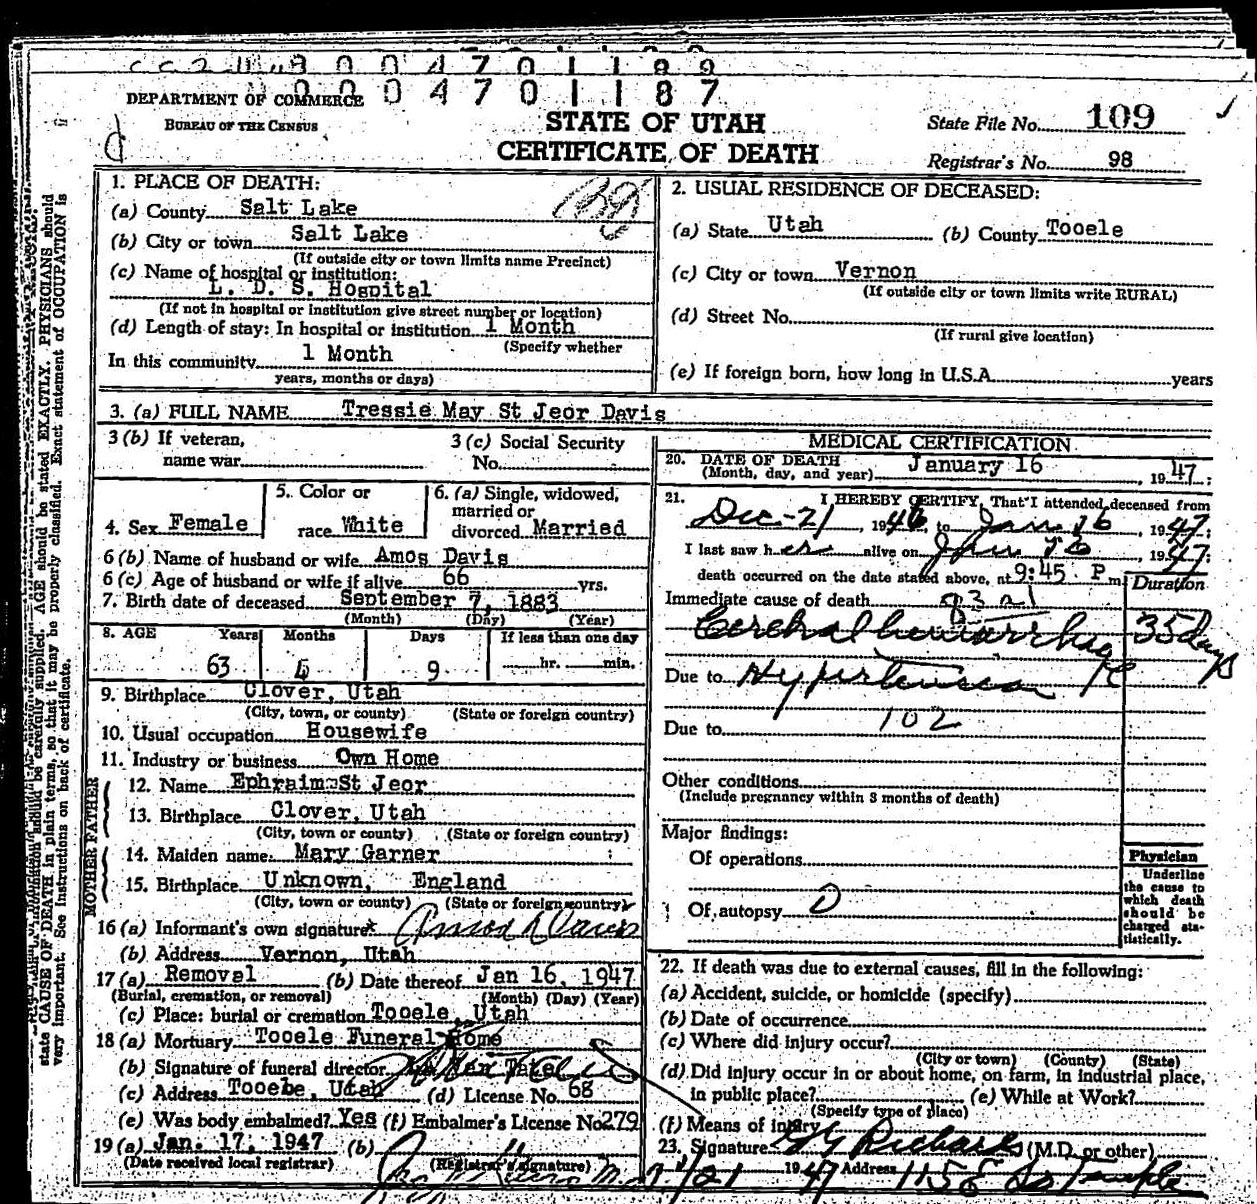 0004701187
DEPARTMENT OF COMMERCE
BUREAU OF THE CENSUS
STATE OF UTAH
CERTIFICATE OF DEATH
State File No. 109
Registrar's No. 98
1. PLACE OF DEATH:
(a) County Salt Lake
(b) City or town Salt Lake
(If outside city or town limits name Precinct)
(c) Name of hospital or institution:
L. D. S. Hospital
(If not in hospital or institution give street number or location)
(d) Length of stay: In hospital or institution 1 Month
(Specify whether
In this community 1 Month
years, months or days)
2. USUAL RESIDENCE OF DECEASED:
(a) State Utah (b) County Tooele
(c) City or town Vernon
(If outside city or town limits write RURAL)
(d) Street No.
(If rural give location)
(e) If foreign born, how long in U.S.A. years
3. (a) FULL NAME Tressie May St Jeor Davis
3 (b) If veteran,
name war
3 (c) Social Security
No.
4. Sex Female
5. Color or
race White
6. (a) Single, widowed,
married or
divorced Married
6 (b) Name of husband or wife Amos Davis
6 (c) Age of husband or wife if alive 66 yrs.
7. Birth date of deceased September 7, 1883
(Month) (Day) (Year)
8. AGE Years Months Days If less than one day
63 4 9 hr. min.
9. Birthplace Clover, Utah
(City, town, or county) (State or foreign country)
10. Usual occupation Housewife
11. Industry or business Own Home
FATHER
12. Name Ephraim St Jeor
13. Birthplace Clover, Utah
(City, town or county) (State or foreign country)
MOTHER
14. Maiden name Mary Garner
15. Birthplace Unknown, England
(City, town or county) (State or foreign country)
16 (a) Informant's own signature
(b) Address Vernon, Utah
17 (a) Removal (b) Date thereof Jan 16, 1947
(Burial, cremation, or removal) (Month) (Day) (Year)
(c) Place: burial or cremation Tooele, Utah
18 (a) Mortuary Tooele Funeral Home
(b) Signature of funeral director
(c) Address Tooele, Utah (d) License No. 68
(e) Was body embalmed? Yes (f) Embalmer's License No 279
19 (a) Jan. 17, 1947 (b)
(Date received local registrar) (Registrar's signature)
MEDICAL CERTIFICATION
20. DATE OF DEATH January 16
(Month, day, and year) , 1947;
21. I HEREBY CERTIFY, That I attended deceased from
Dec-21, 1946, to Jan 16, 1947;
I last saw her alive on Jan 16, 1947;
death occurred on the date stated above, at 9:45 P m. Duration
Immediate cause of death 83 a1
Cerebral hemorrhage 35 days
Due to Hypertension
102
Due to
Other conditions
(Include pregnancy within 3 months of death)
Major findings:
Of operations
Of autopsy 0
Physician
Underline
the cause to
which death
should be
charged sta-
tistically.
22. If death was due to external causes, fill in the following:
(a) Accident, suicide, or homicide (specify)
(b) Date of occurrence
(c) Where did injury occur?
(City or town) (County) (State)
(d) Did injury occur in or about home, on farm, in industrial place,
in public place? (e) While at Work?
(Specify type of place)
(f) Means of injury
23. Signature G G Richards (M.D. or other)
1/21 1947 Address 115 E So Temple
state CAUSE OF DEATH in plain terms, so that it may be properly classified. Exact statement of OCCUPATION is
very important. See instructions on back of certificate.